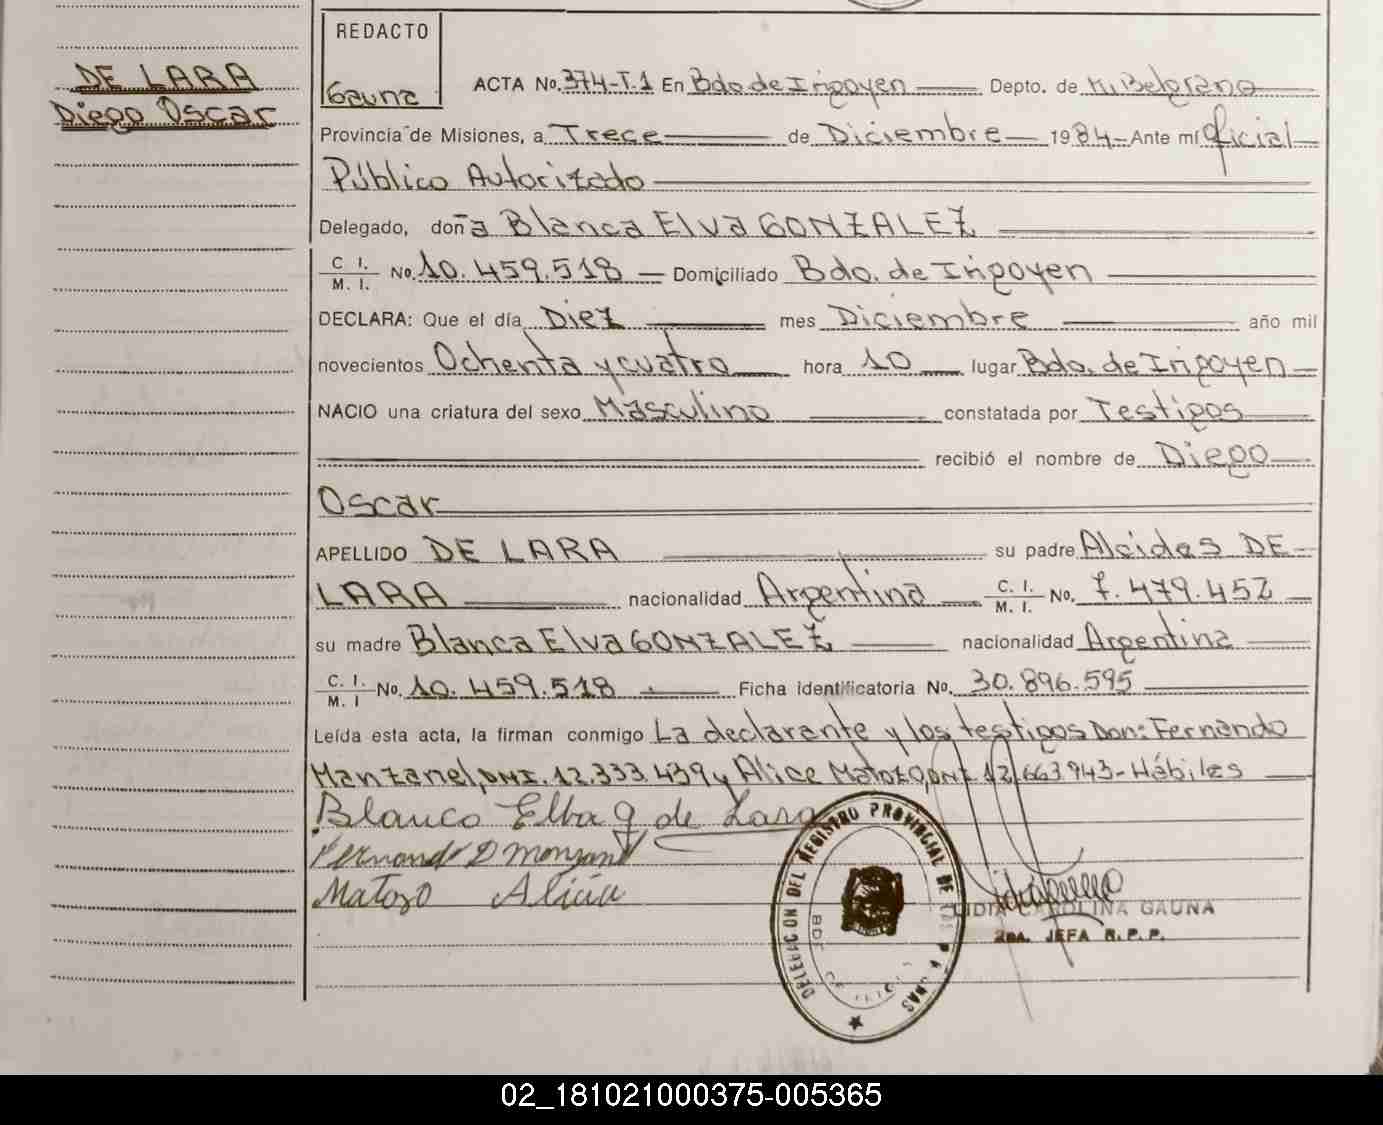 DE LARA
Diego Oscar
REDACTO
Gauna
ACTA No. 374-T.1 En Bdo de Irigoyen Depto. de M. Belgrano
Provincia de Misiones, a Trece de Diciembre 1984 Ante mí Oficial
Público Autorizado
Delegado, doña Blanca Elva GONZALEZ
C. I.
M. I. No. 10.459.518 Domiciliado Bdo. de Irigoyen
DECLARA: Que el día Diez mes Diciembre año mil
novecientos Ochenta y cuatro hora 10 lugar Bdo. de Irigoyen
NACIO una criatura del sexo Masculino constatada por Testigos
recibió el nombre de Diego
Oscar
APELLIDO DE LARA su padre Alcides DE
LARA nacionalidad Argentina C. I. M. I. No. 7.479.452
su madre Blanca Elva GONZALEZ nacionalidad Argentina
C. I. M. I No. 10.459.518 Ficha identificatoria No. 30.896.595
Leída esta acta, la firman conmigo La declarante y los testigos Don: Fernando
Manzanel, DNI. 12.333.439 y Alice Matozo, DNI 12.663.943- Hábiles
Blanco Elba g de Lara
Fernando D
Matozo Alicia
DELEGACION DEL REGISTRO PROVINCIAL DE LAS PERSONAS
LIDIA CAROLINA GAUNA
2da. JEFA R.P.P.
02_181021000375-005365